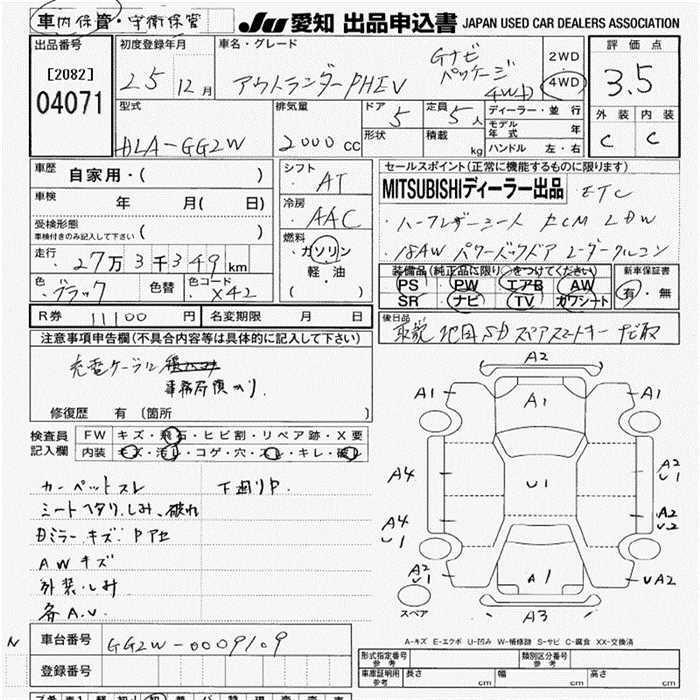 車内保管・守衛保管
JU 愛知 出品申込書 JAPAN USED CAR DEALERS ASSOCIATION
出品番号 初度登録年月 車名・グレード 評価点
[2082] 25 12月 アウトランダーPHEV Gナビパッケージ 4WD 2WD 4WD 3.5
04071
型式 排気量 ドア 5 定員 5人 ディーラー・並行 外装 内装
DLA-GG2W 2000cc 形状 積載 kg モデル年式 年 C C
ハンドル 左・右
車歴 自家用・( ) シフト ・AT セールスポイント(正常に機能するものに限ります)
車検 年 月( 日) 冷房 ・AAC MITSUBISHIディーラー出品 ・ETC
受検形態 ・( ) ・ハーフレザーシート FCM LDW
車検付きのみ記入して下さい
走行 ・27万3千349km 燃料 ガソリン 軽・油 ( ) ・18AW パワーバックドア レーダークルコン
色 ・ブラック 色替 色コード ・X42 装備品(純正品に限り○をつけてください) 新車保証書
PS PW エアB AW 有・無
SR ナビ TV カワシート
R券 11100円 名変期限 月 日 後日品
取説 地図SD スペアスマートキー ナビ取
注意事項申告欄(不具合内容等は具体的に記入して下さい)
充電ケーブル
事務所預かり.
修復歴 有 (箇所 )
検査員記入欄 FW キズ・飛石・ヒビ割・リペア跡・X要
内装 キズ・汚レ・コゲ・穴・スレ・キレ・破レ
カーペットスレ 下廻りP.
シートヘタリ、しみ、破れ
Dミラーキズ:Pアセ
AWキズ
外装・しみ
各A.U.
A2
A1 A1 A1
A4 U1 A2 U1
A4 U1 A2 U2
A2 U1 A1 UA2
スペア A3
A-キズ E-エクボ U-凹み W-補修跡 S-サビ C-腐食 XX-交換済
N 車台番号 GG2W-0009109
登録番号
形式指定番号 参考 類別区分番号 参考
車庫証明用 参考 長さ cm 幅 cm 高さ cm